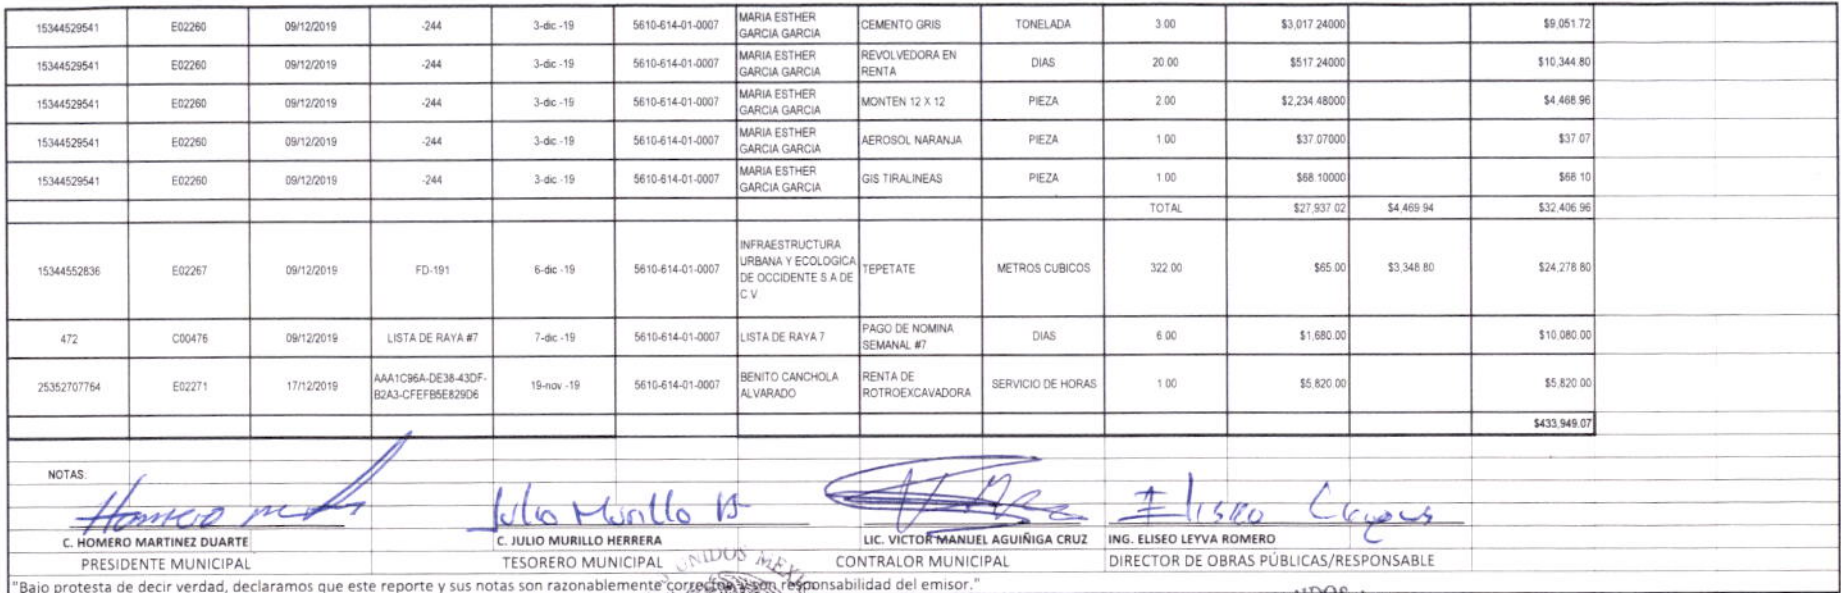 15344529541 E02260 09/12/2019 -244 3-dic -19 5610-614-01-0007 MARIA ESTHER GARCIA GARCIA CEMENTO GRIS TONELADA 3.00 $3,017.24000 $9,051.72
15344529541 E02260 09/12/2019 -244 3-dic -19 5610-614-01-0007 MARIA ESTHER GARCIA GARCIA REVOLVEDORA EN RENTA DIAS 20.00 $517.24000 $10,344.80
15344529541 E02260 09/12/2019 -244 3-dic -19 5610-614-01-0007 MARIA ESTHER GARCIA GARCIA MONTEN 12 X 12 PIEZA 2.00 $2,234.48000 $4,468.96
15344529541 E02260 09/12/2019 -244 3-dic -19 5610-614-01-0007 MARIA ESTHER GARCIA GARCIA AEROSOL NARANJA PIEZA 1.00 $37.07000 $37.07
15344529541 E02260 09/12/2019 -244 3-dic -19 5610-614-01-0007 MARIA ESTHER GARCIA GARCIA GIS TIRALINEAS PIEZA 1.00 $68.10000 $68.10
TOTAL $27,937.02 $4,469.94 $32,406.96
15344552836 E02267 09/12/2019 FD-191 6-dic -19 5610-614-01-0007 INFRAESTRUCTURA URBANA Y ECOLOGICA DE OCCIDENTE S.A DE C V TEPETATE METROS CUBICOS 322.00 $65.00 $3,348.80 $24,278.80
472 C00476 09/12/2019 LISTA DE RAYA #7 7-dic -19 5610-614-01-0007 LISTA DE RAYA 7 PAGO DE NOMINA SEMANAL #7 DIAS 6.00 $1,680.00 $10,080.00
25352707764 E02271 17/12/2019 AAA1C96A-DE38-43DF-B2A3-CFEFB5E829D6 19-nov -19 5610-614-01-0007 BENITO CANCHOLA ALVARADO RENTA DE ROTROEXCAVADORA SERVICIO DE HORAS 1.00 $5,820.00 $5,820.00
$433,949.07
NOTAS:
Homero Julio Murillo H Eliseo
C. HOMERO MARTINEZ DUARTE C. JULIO MURILLO HERRERA LIC. VICTOR MANUEL AGUIÑIGA CRUZ ING. ELISEO LEYVA ROMERO
PRESIDENTE MUNICIPAL TESORERO MUNICIPAL CONTRALOR MUNICIPAL DIRECTOR DE OBRAS PÚBLICAS/RESPONSABLE
UNIDOS
"Bajo protesta de decir verdad, declaramos que este reporte y sus notas son razonablemente correctos y son responsabilidad del emisor."